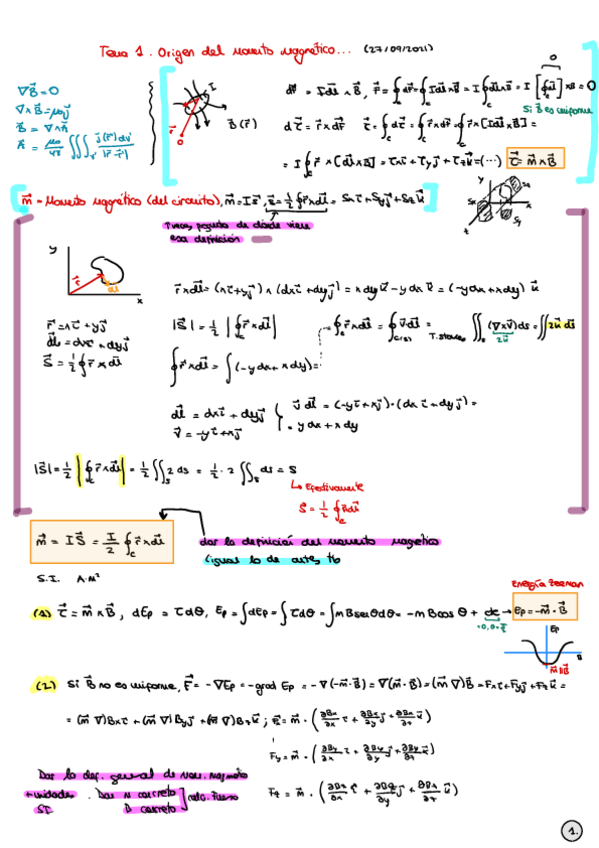 Tema 1. Origen del momento magnético... (27/09/2021)
∇B⃗=0
∇∧B⃗=μ₀j⃗
B⃗ = ∇∧A⃗
A⃗ = μ₀/4π ∭ j⃗(r⃗')dv'/|r⃗-r⃗'|
I
B⃗(r⃗)
dF⃗ = Idl⃗ ∧ B⃗, F⃗=∮dF⃗=∮Idl⃗∧B⃗ = I∮dl⃗∧B⃗ = I [∮dl⃗]∧B = 0
0
Si B⃗ es uniforme
dτ⃗ = r⃗∧dF⃗ τ⃗=∮dτ⃗ =∮r⃗∧dF⃗=∮r⃗∧[Idl⃗∧B⃗] =
= I∮r⃗∧[dl⃗∧B⃗] = τxi⃗ + τyj⃗ + τzk⃗ =(...) τ⃗ = m⃗∧B⃗
m⃗ = Momento magnético (del circuito), m⃗=IS⃗, S⃗=½∮r⃗∧dl⃗ = Sxi⃗+Syj⃗+Szk⃗
esa definición
y
x
r⃗∧dl⃗= (xi⃗+yj⃗)∧(dxi⃗+dyj⃗) = xdyk⃗-ydxk⃗ = (-ydx+xdy)k⃗
r⃗=xi⃗+yj⃗
dl⃗= dxi⃗+dyj⃗
S⃗=½∮r⃗∧dl⃗
|S⃗| = ½ |∮r⃗∧dl⃗|
∮r⃗∧dl⃗ = ∮v⃗dl⃗ = T.Stokes ∬(∇∧v⃗)ds = ∬2k⃗ds⃗
2k⃗
∮r⃗∧dl⃗ = ∫(-ydx+xdy)=
dl⃗ = dxi⃗ + dyj⃗
v⃗ = -yi⃗+xj⃗
v⃗dl⃗ = (-yi⃗+xj⃗)·(dxi⃗+dyj⃗) =
= ydx + xdy
|S⃗|=½|∮r⃗∧dl⃗| = ½∬2ds = ½·2∬ds = S
↳ Efectivamente
S = ½∮r⃗dl⃗
m⃗ = IS⃗ = I/2 ∮r⃗∧dl⃗
dar la definición del momento magnético
(igual lo de antes, tb
S.I. A·M²
Energía Zeeman
(1) τ⃗ = m⃗∧B⃗, dEp = τdθ, Ep=∫dEp=∫τdθ=∫mBsenθdθ= -mBcosθ + cte → Ep=-m⃗·B⃗
Ep
θ
m⃗∥B⃗
(2) Si B⃗ no es uniforme, F⃗ = -∇Ep = -grad Ep = -∇(-m⃗·B⃗) = ∇(m⃗·B⃗) = (m⃗∇)B⃗ = Fxi⃗+Fyj⃗+Fzk⃗ =
= (m⃗∇)Bxi⃗ + (m⃗∇)Byj⃗ + (m⃗∇)Bzk⃗ ; Fx= m⃗·(∂Bx/∂x i⃗ + ∂Bx/∂y j⃗ + ∂Bx/∂z k⃗)
Fy= m⃗·(∂By/∂x i⃗ + ∂By/∂y j⃗ + ∂By/∂z k⃗)
Fz = m⃗·(∂Bz/∂x i⃗ + ∂Bz/∂y j⃗ + ∂Bz/∂z k⃗)
Dar la def. general de
+unidades. Dar M concreto
SI B concreto
calc. Fuerza
1.